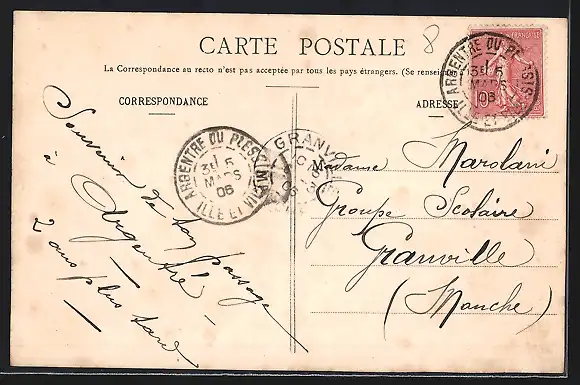 8
CARTE POSTALE
La Correspondance au recto n'est pas acceptée par tous les pays étrangers. (Se renseign
CORRESPONDANCE
ADRESSE
FRANÇAISE
10
ARGENTRE DU PLESSIS
3E 5
MARS
06
ILLE ET
ARGENTRE DU PLESSIS
3E 5
MARS
06
ILLE ET VILAINE
GRANV
Souvenir de ton passage
à Argentré -
2 ans plus tard.
Madame Marolani
Groupe Scolaire
Granville
(Manche)